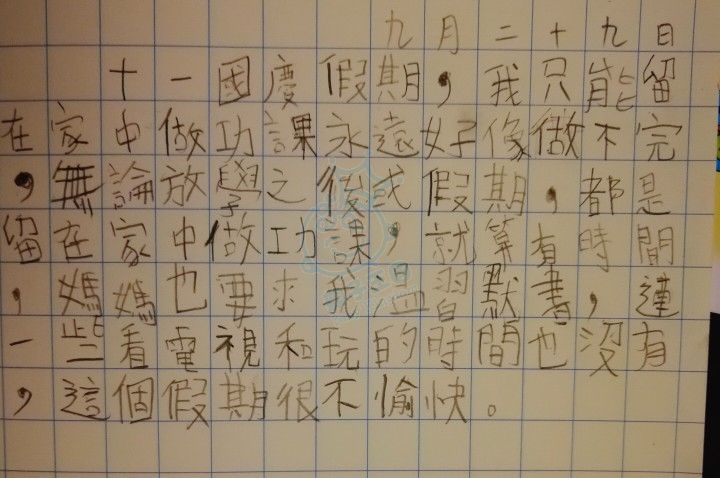 九月二十九日
十一國慶假期，我只能留
在家中做功課永遠好像做不完
，無論放學之後或假期，都是
留在家中做功課，就算有時間
，媽媽也要求我溫習默書，連
一些看電視和玩的時間也沒有
，這個假期很不愉快。